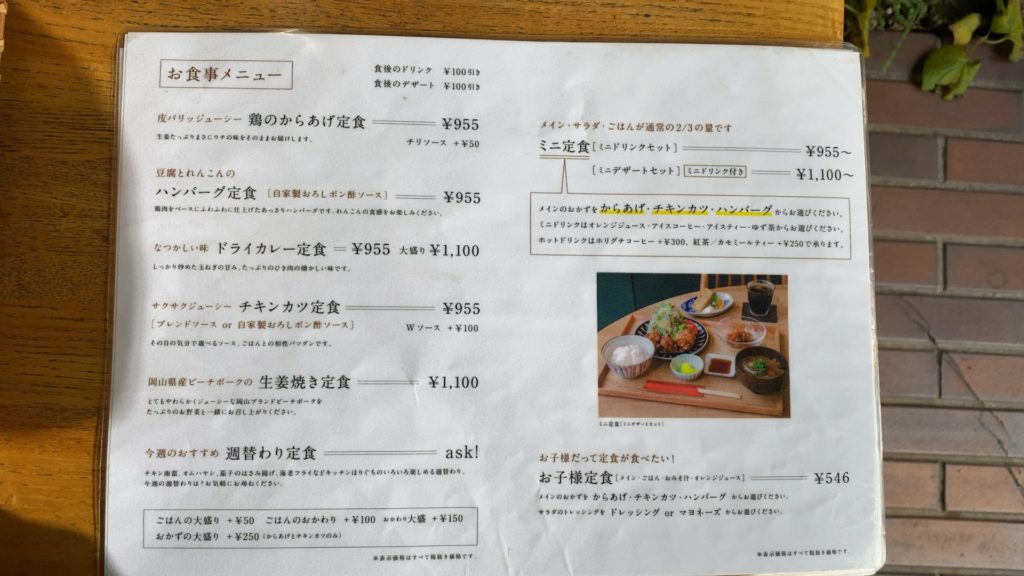 お食事メニュー
食後のドリンク ¥100引き
食後のデザート ¥100引き
皮パリッジューシー 鶏のからあげ定食 ¥955
生姜たっぷりまさにウチの味をそのままお届けします。 チリソース +¥50
豆腐とれんこんの
ハンバーグ定食 [自家製おろしポン酢ソース] ¥955
鶏肉をベースにふわふわに仕上げたあっさりハンバーグです。れんこんの食感をお楽しみください。
なつかしい味 ドライカレー定食 ¥955 大盛り ¥1,100
しっかり炒めた玉ねぎの甘み、たっぷりのひき肉の懐かしい味です。
サクサクジューシー チキンカツ定食 ¥955
[ブレンドソース or 自家製おろしポン酢ソース] Wソース +¥100
その日の気分で選べるソース、ごはんとの相性バツグンです。
岡山県産ピーチポークの 生姜焼き定食 ¥1,100
とてもやわらかくジューシーな岡山ブランドピーチポークを
たっぷりのお野菜と一緒にお召し上がりください。
今週のおすすめ 週替わり定食 ask!
チキン南蛮、オムハヤシ、茄子のはさみ揚げ、海老フライなどキッチンほりぐちのいろいろ楽しめる週替わり。
今週の週替わりは?お気軽にお尋ねください。
ごはんの大盛り +¥50 ごはんのおかわり +¥100 おかわり大盛 +¥150
おかずの大盛り +¥250(からあげとチキンカツのみ)
※表示価格はすべて税抜き価格です。
メイン・サラダ・ごはんが通常の2/3の量です
ミニ定食[ミニドリンクセット] ¥955〜
[ミニデザートセット] ミニドリンク付き ¥1,100〜
メインのおかずを からあげ・チキンカツ・ハンバーグ からお選びください。
ミニドリンクはオレンジジュース・アイスコーヒー・アイスティー・ゆず茶からお選びください。
ホットドリンクはホリグチコーヒー +¥300、紅茶/カモミールティー +¥250で承ります。
ミニ定食[ミニデザートセット]
お子様だって定食が食べたい!
お子様定食[メイン・ごはん・おみそ汁・オレンジジュース] ¥546
メインのおかずを からあげ・チキンカツ・ハンバーグ からお選びください。
サラダのトレッシングを ドレッシング or マヨネーズ からお選びください。
※表示価格はすべて税抜き価格です。